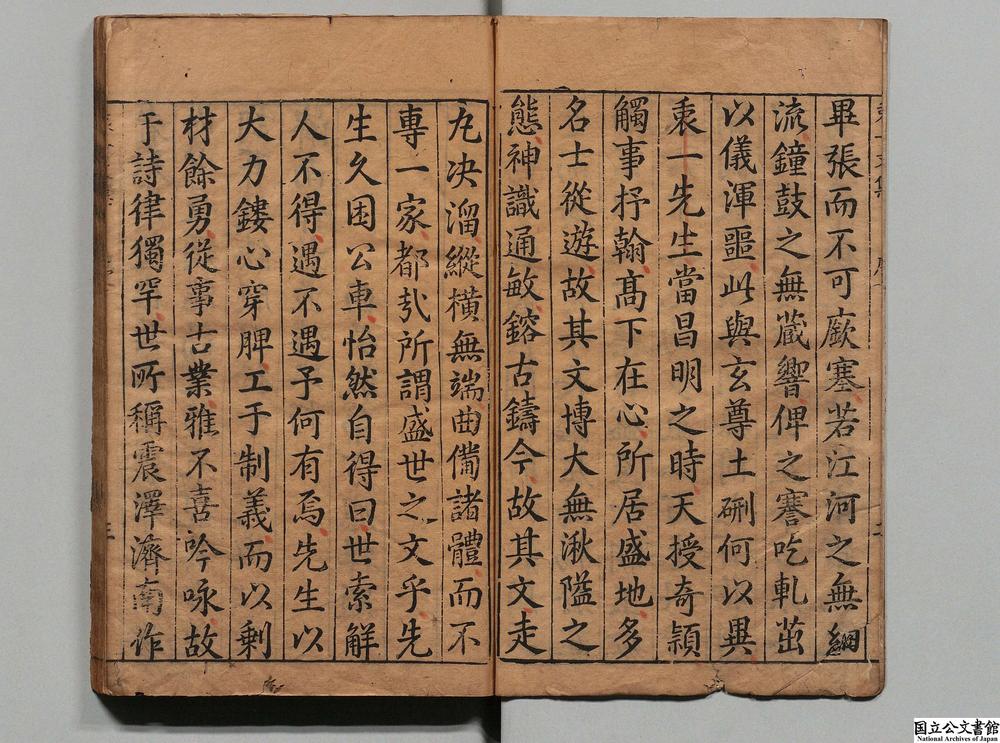 畢張而不可厥蹇若江河之無綱
流鐘鼓之無蔵響俾之謇吃軋茁
以儀渾噩此與玄尊土硎何以異
秉一先生當昌明之時天授奇穎
觸事抒翰髙下在心所居盛地多
名士從遊故其文博大無湫隘之
態神識通敏鎔古鑄今故其文走
九决溜縱橫無端曲備諸體而不
專一家都㢤所謂盛世之文乎先
生久困公車怡然自得曰世索解
人不得遇不遇予何有焉先生以
大力鏤心穿脾工于制義而以剩
材餘勇從事古業雅不喜吟咏故
于詩律獨罕世所稱震澤濟南作
国立公文書館
National Archives of Japan